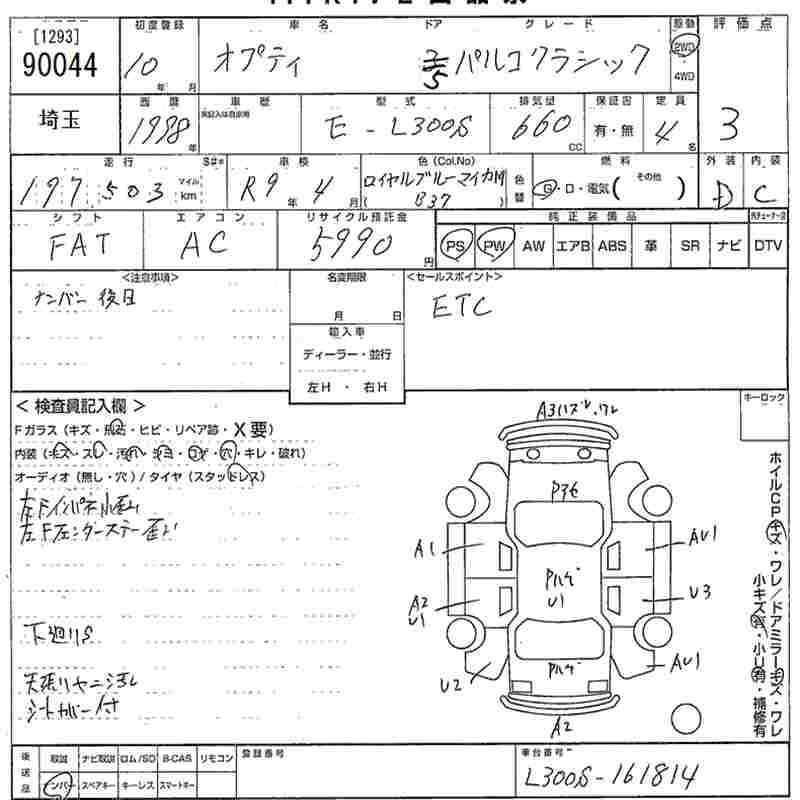 [1293]
90044
埼玉
初度登録 車名 ドア グレード 駆動 評価点
10 年 月 オプティ 5 パルコクラシック 2WD 4WD 3
西暦 車歴 型式 排気量 保証書 定員
1998 年 未記入は自家用 E-L300S 660 CC 有・無 4 名
走行 S#* 車検 色(Col,No) 燃料 外装 内装
197,503 マイル km R9 年 4 月 ロイヤルブルーマイカM ( B37 ) 色替 G・D・電気( その他 ) D C
シフト エアコン リサイクル預託金 純正装備品
FAT AC 5990 円 PS PW AW エアB ABS 革 SR ナビ DTV
<注意事項> 名変期限 <セールスポイント>
ナンバー 後日 月 日 ETC
輸入車
ディーラー・並行
左H ・ 右H
キーロック
< 検査員記入欄 >
Fガラス (キズ・飛石・ヒビ・リペア跡・X要)
内装 (キズ・スレ・汚れ・キヨ・コゲ・穴・キレ・破れ)
オーディオ (無し・穴) / タイヤ (スタッドレス)
左Fインパネ小歪ミ
左Fフェンダーステー歪ミ
下廻りS
天張リヤニ汚レ
シートカバー付
A3ハズレ,ワレ
Pアセ
A1
AU1
Pハゲ
U1
A2
U1
U3
Pハゲ
U2
AU1
A2
ホイルCPキズ・ワレ/ドアミラーキズ・ワレ
小キズ有・小U有・補修有
後送品 取説 ナビ取説 ロム/SD B-CAS リモコン 登録番号 車台番号
ナンバー スペアキー キーレス スマートキー L300S-161814